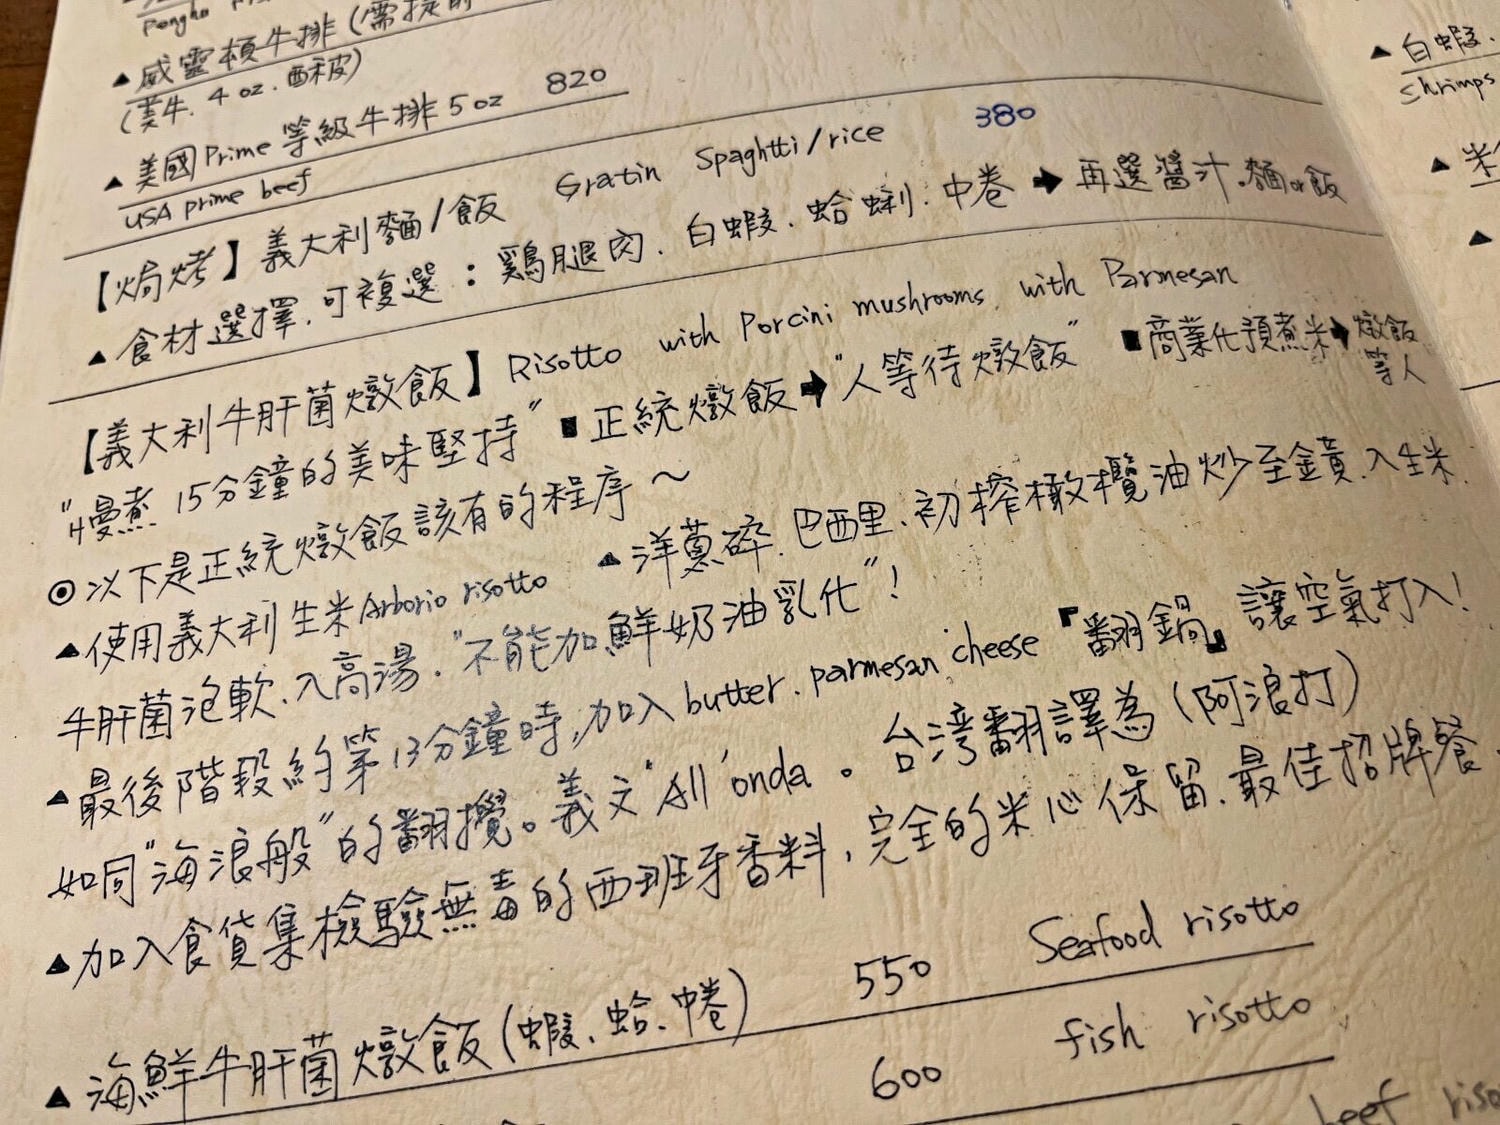 ▲威靈頓牛排(需提前
(美牛. 4 oz. 酥皮)
▲美國Prime 等級牛排 5 oz 820
USA prime beef
【焗烤】義大利麵/飯 Gratin Spaghtti/rice 380
▲食材選擇.可複選:雞腿肉.白蝦.蛤蜊.中卷➡再選醬汁.麵or飯
【義大利牛肝菌燉飯】Risotto with Porcini mushrooms with Parmesan
"慢煮 15分鐘的美味堅持" ■正統燉飯➡"人等待燉飯" ■商業化預煮米➡燉飯等人
◎以下是正統燉飯該有的程序～
▲使用義大利生米Arborio risotto ▲洋蔥碎.巴西里.初榨橄欖油炒至金黃.入生米.
牛肝菌泡軟.入高湯."不能加鮮奶油乳化"!
▲最後階段約第13分鐘時,加入butter.parmesan cheese『翻鍋』讓空氣打入!
如同"海浪般"的翻攪。義文"All'onda。台灣翻譯為(阿浪打)
▲加入食貨集檢驗無毒的西班牙香料,完全的米心保留.最佳招牌餐.
▲海鮮牛肝菌燉飯(蝦.蛤.中卷) 550 Seafood risotto
600 fish risotto
beef
▲白蝦.
shrimps
▲
▲